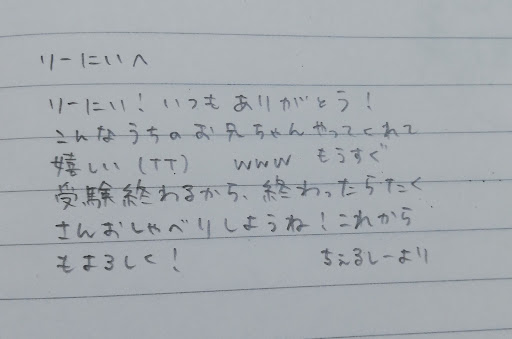 りーにいへ
りーにい！いつもありがとう！
こんなうちのお兄ちゃんやってくれて
嬉しい(TT) www もうすぐ
受験終わるから、終わったらたく
さんおしゃべりしようね！これから
もよろしく！ ちぇるしーより